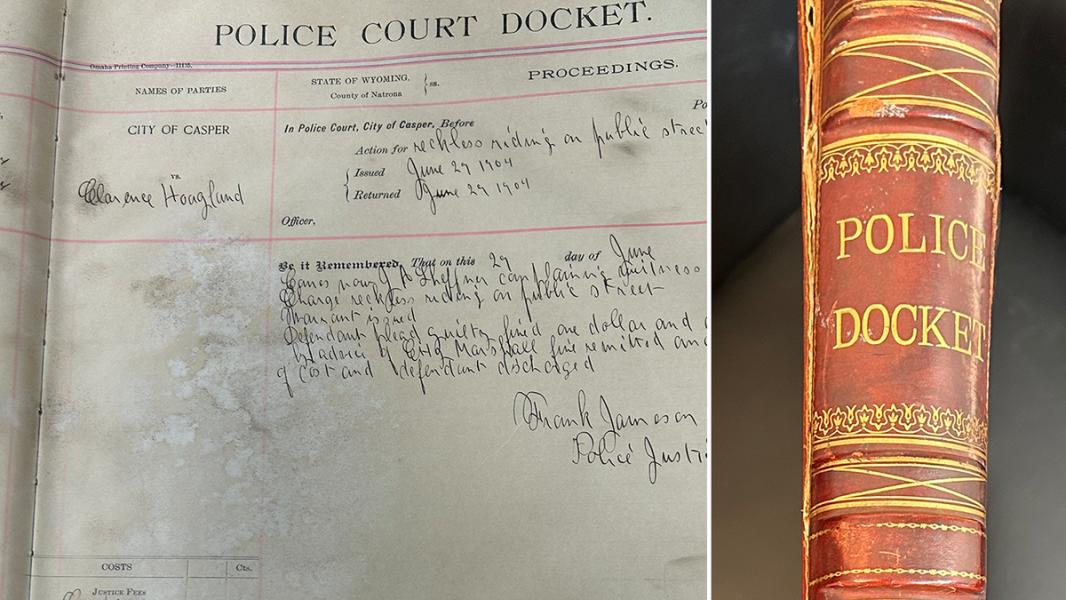 POLICE COURT DOCKET.
Omaha Printing Company—11115.
NAMES OF PARTIES
STATE OF WYOMING, } ss.
County of Natrona
PROCEEDINGS.
CITY OF CASPER
vs.
Clarence Hoagland
In Police Court, City of Casper, Before
Action for reckless riding on public stree
Issued June 29 1904
Returned June 29 1904
Officer,
Be it Remembered, That on this 29 day of June
Comes now J A Sheffner complaining witness
Charge reckless riding on public street
Warrant issued
Defendant plead guilty fined one dollar and
by advice of City Marshall fine remitted and
of cost and defendant discharged
Frank Jameson
Police Justi
COSTS
Cts.
JUSTICE FEES
POLICE
DOCKET